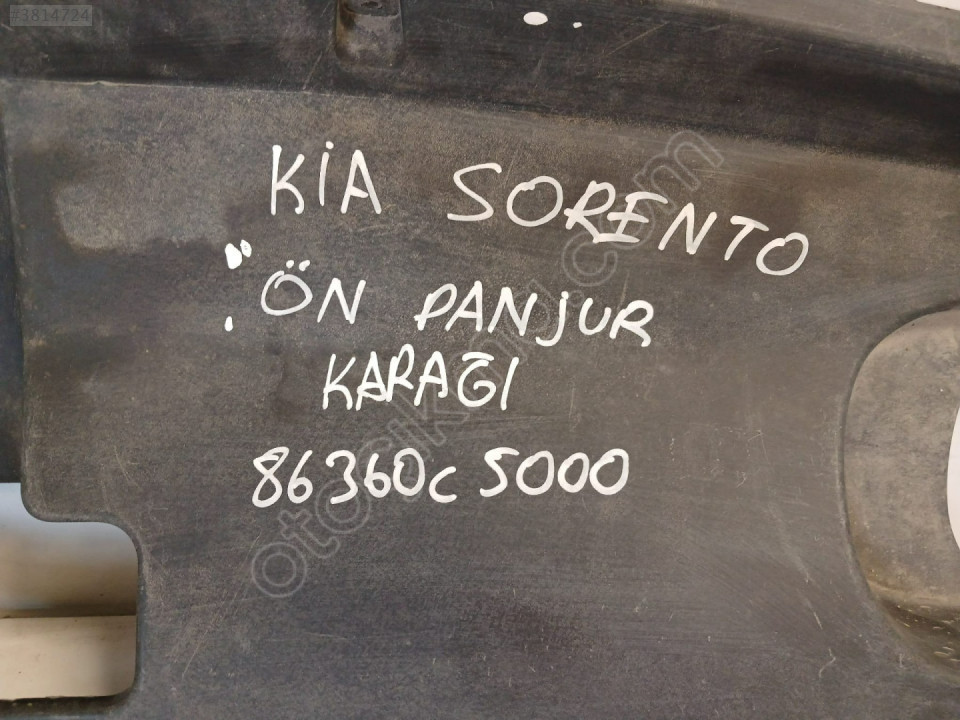 #3814724
KİA SORENTO
ÖN PANJUR
KARAĞI
86360C5000
otocikma.com